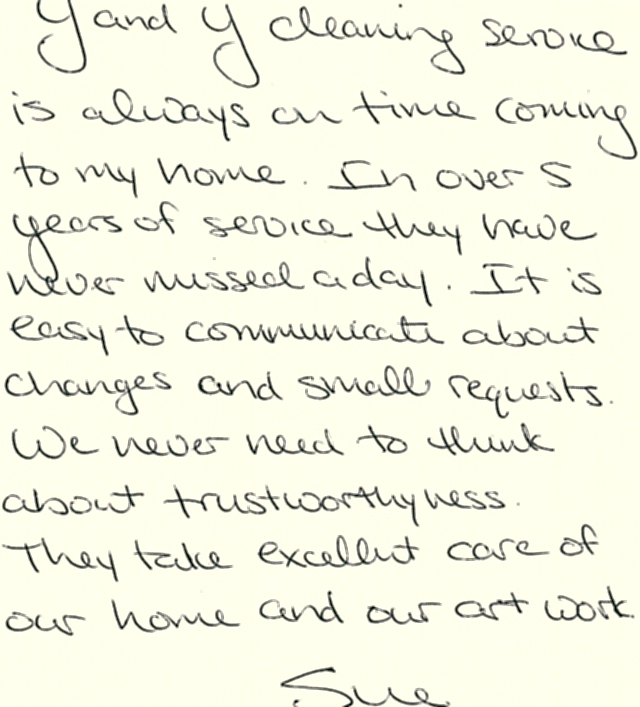 Y and Y cleaning service
is always on time coming
to my home. In over 5
years of service they have
never missed a day. It is
easy to communicate about
changes and small requests.
We never need to think
about trustworthyness.
They take excellent care of
our home and our art work
Sue